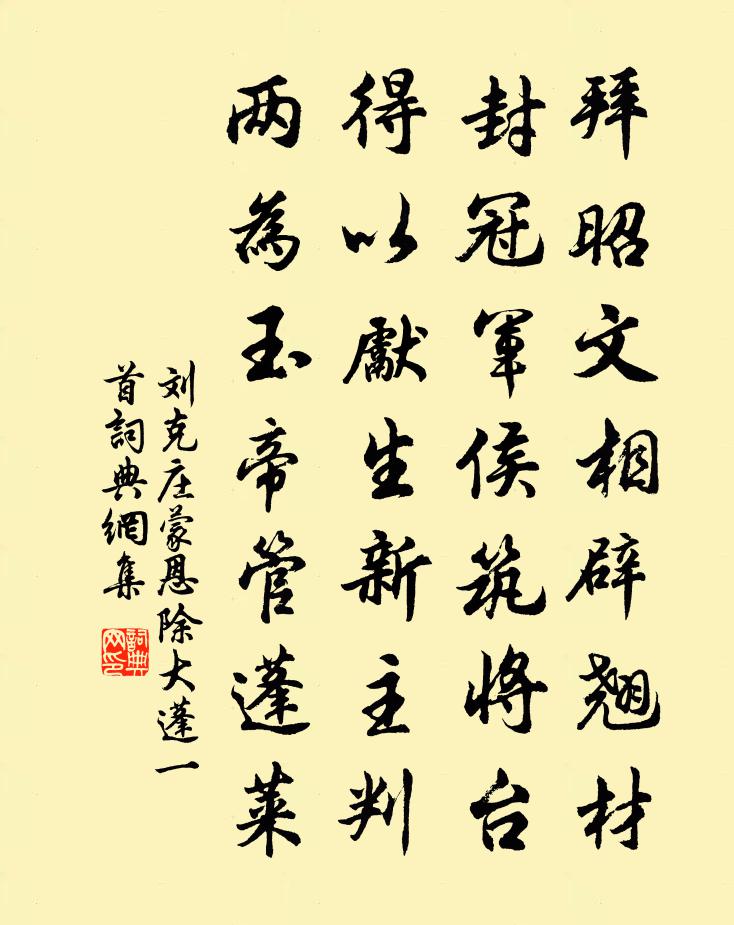 拜昭文相辟翘材
封冠軍侯筑將台
得以獻生新主判
两為玉帝管蓬莱
刘克庄蒙恩除大蓬一
首詞典網集
詞典网印